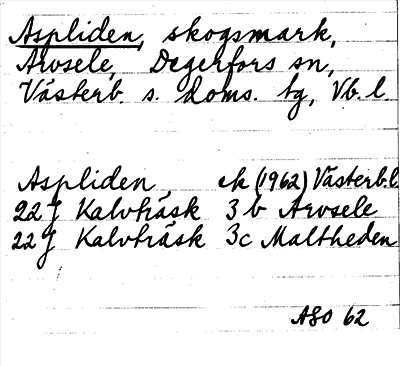 Aspliden, skogsmark,
Arvsele, Degerfors sn,
Västerb. s. doms. tg, Vb. l.
Aspliden ek (1962) Västerb. l
22 J Kalvträsk 3 b Arvsele
22 J Kalvträsk 3c Maltheden
ASO 62